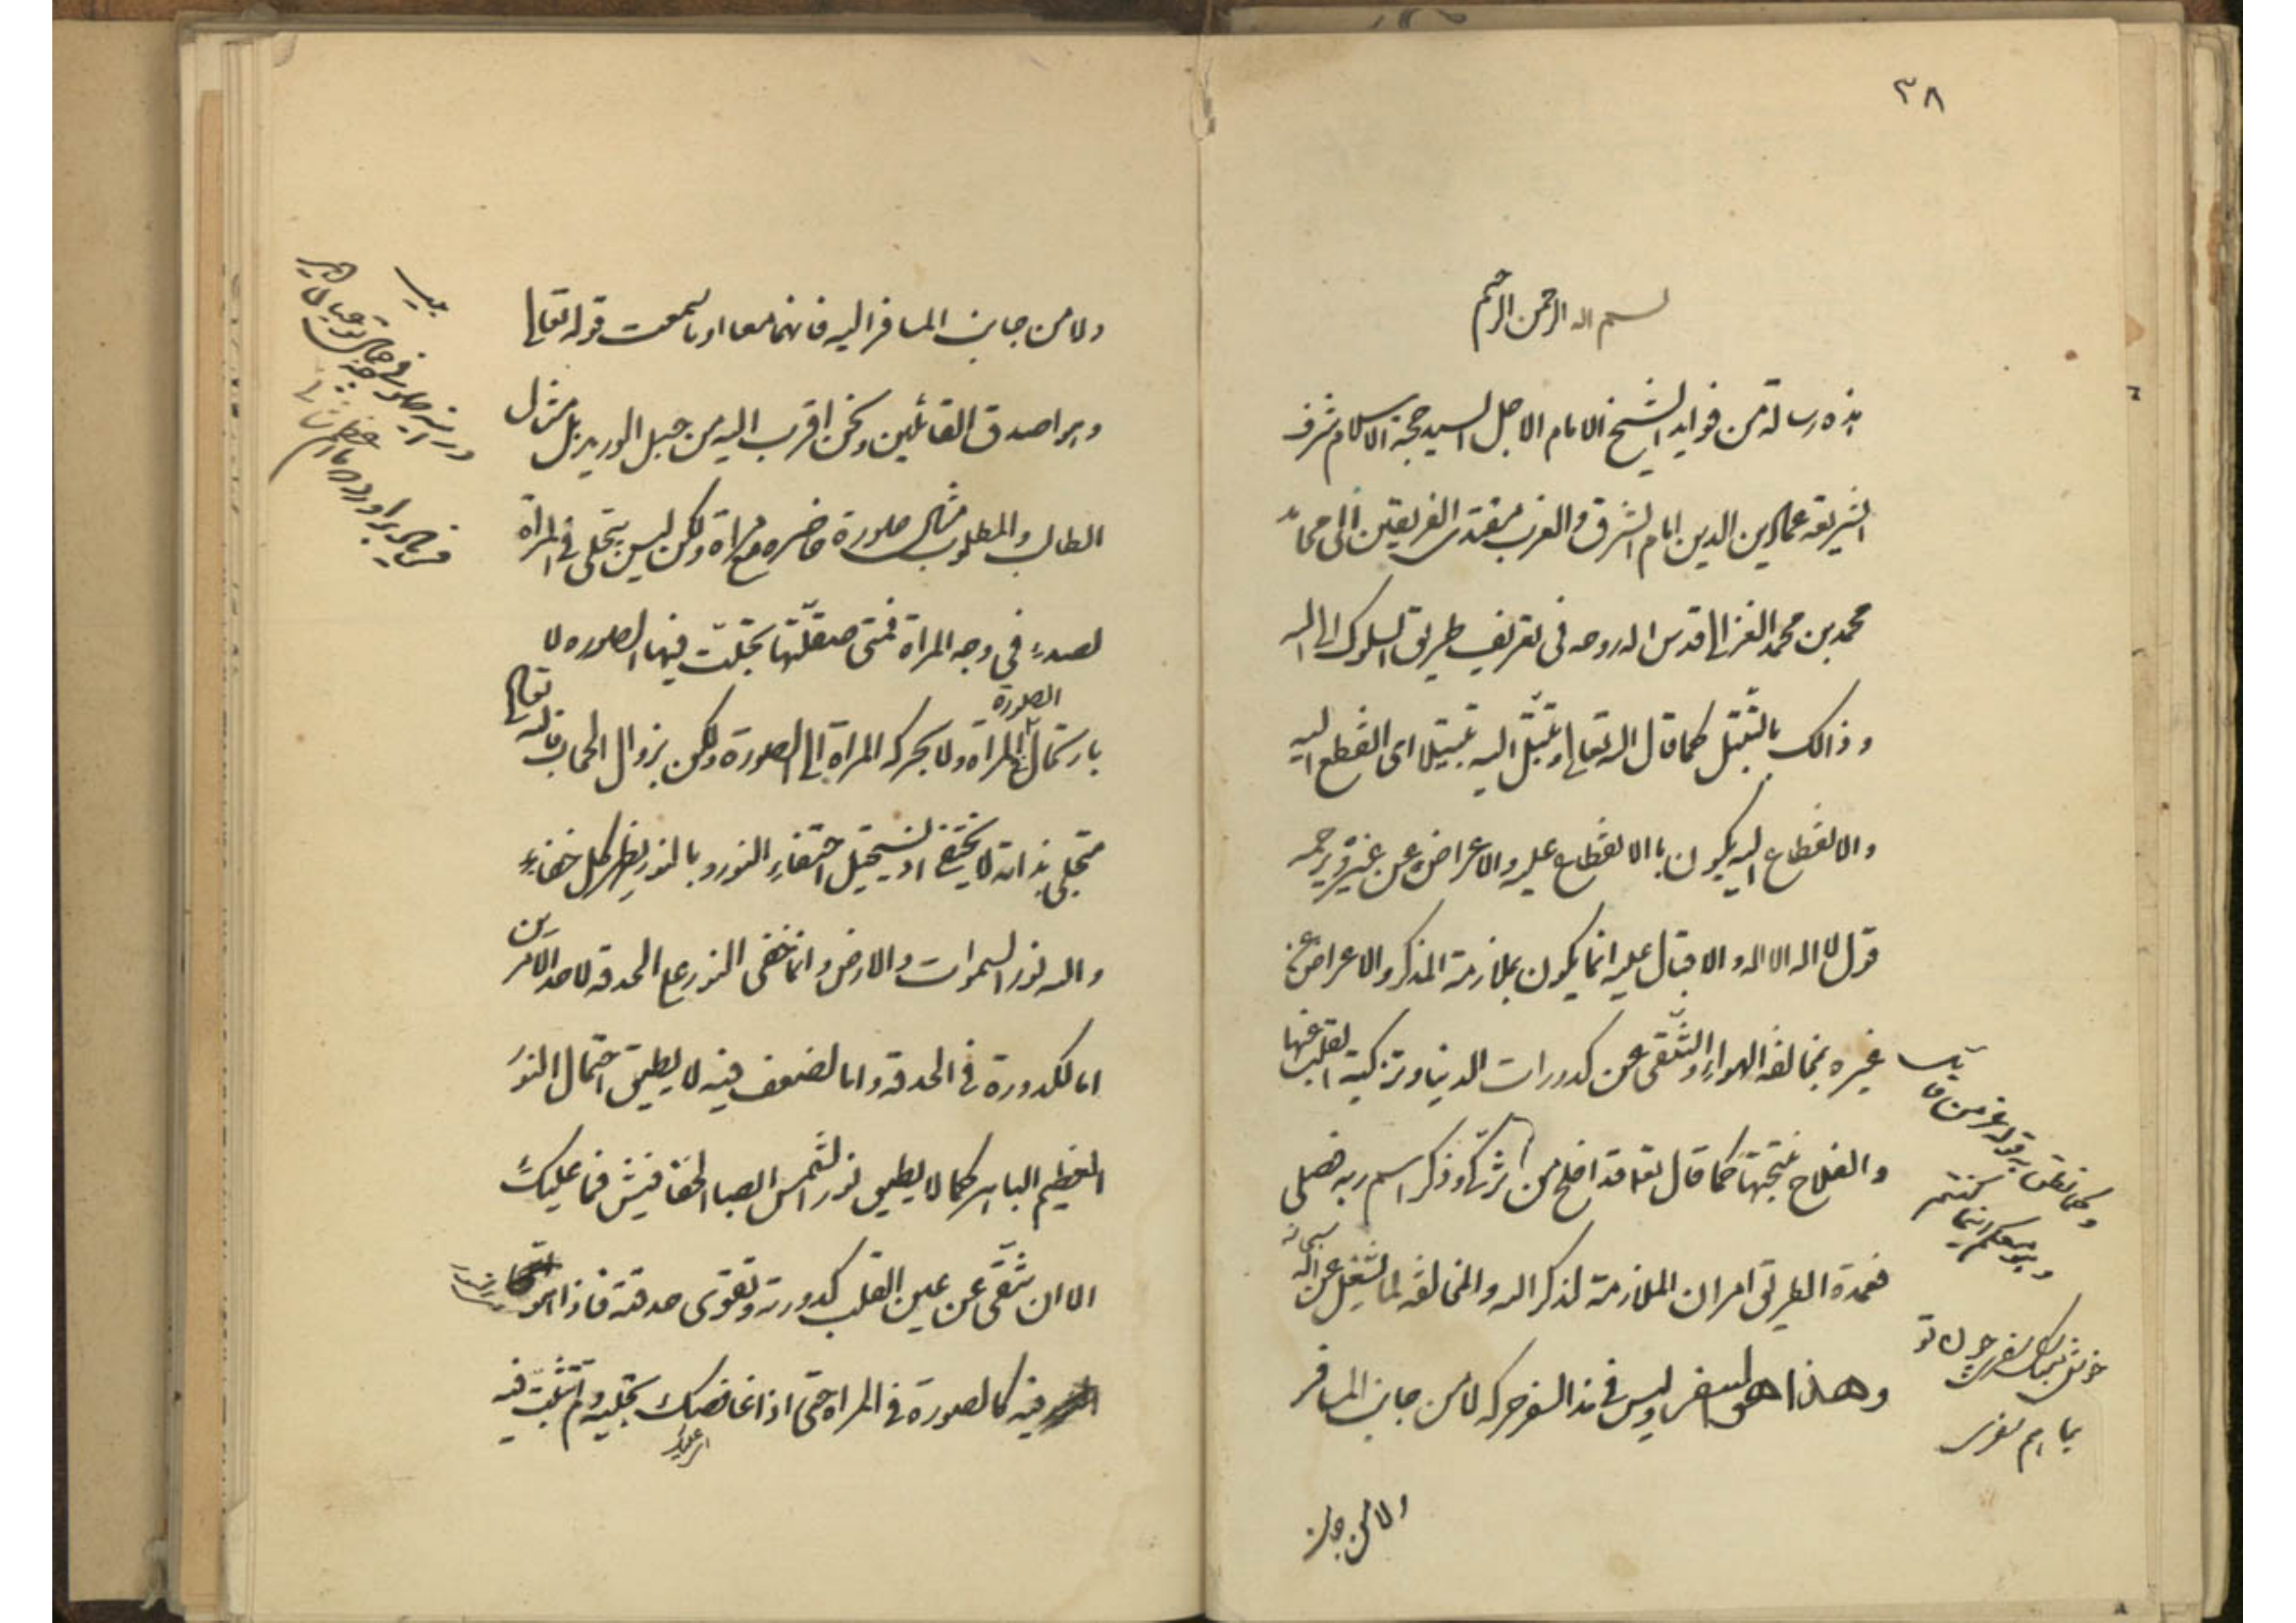 ٣٨
بسم الله الرحمن الرحيم
هذه رسالة من فوايد الشيخ الامام الاجل السيد حجة الاسلام شرف
الشريعة عماد الدين امام الشرق والغرب مقتدى الفريقين ابى حامد
محمد بن محمد الغزالى قدس الله روحه فى تعريف طريق السلوك الى الله
وذالك بالتبتل كما قال الله تعالى وتبتل اليه تبتيلا اى انقطع اليه
والانقطاع اليه يكون باالانقطاع عليه والاعراض عن غيره وترجمه
قول لا اله الا الله والاقبال عليه انما يكون بملازمة الذكر والاعراض عن
غيره بمخالفة الهواء والتنقى عن كدورات الدنيا وتزكية القلب عنها
والفلاح نتيجتها كما قال تعا قد افلح من تزكى وذكر اسم ربه فصلى
فعمدة الطريق امران الملازمة لذكر الله والمخالفة لما يشغل عن الله سبحانه
وهذا هو السفر وليس فى هذا السفر حركه لا من جانب المسافر
ولا من جانب
وكما نطق به قوله عز من قايل
وهو معكم اينما كنتم
ولا من جانب المسافر اليه فانهما معا اوما سمعت قوله تعالى
وهو اصدق القائلين ونحن اقرب اليه من حبل الوريد بل مثل
الطالب والمطلوب مثال صورة حاضرة مع مراة ولكن ليس يتجلى فى المرآة
لصدء فى وجه المراة فمتى صقلتها تجلت فيها الصوره لا
بارتحال الصورة الى المراة ولا بحركه المراة الى الصورة ولكن بزوال الحجاب فالله تعالى
متجلى بذاته لا يختفى اذ يستحيل اختفاء النور وبالنور يظهر كل خفاء
والله نور السموات والارض وانما خفى النور على الحدقه لاحد الامرين
اما لكدورة فى الحدقه واما لضعف فيه لا يطيق احتمال النور
العظيم الباهر كما لا يطيق نور الشمس ابصار الخفافيش فما عليك
الا ان تنقى عن عين القلب كدورته وتقوى حدقته فاذا هو
فيه كالصورة فى المراة حتى اذا غافصك بتجليه ولم تثبت فيه